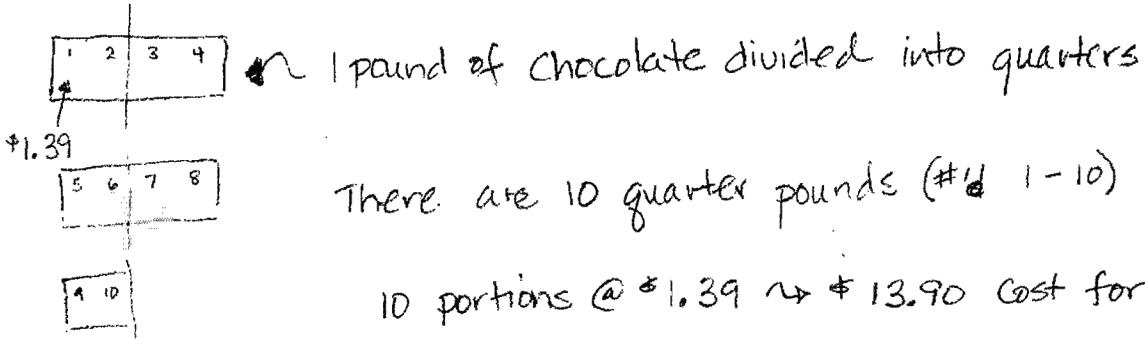 1 2 3 4
1 pound of chocolate divided into quarters
$1.39
5 6 7 8
There are 10 quarter pounds (#'d 1-10)
9 10
10 portions @ $1.39 → $13.90 Cost for